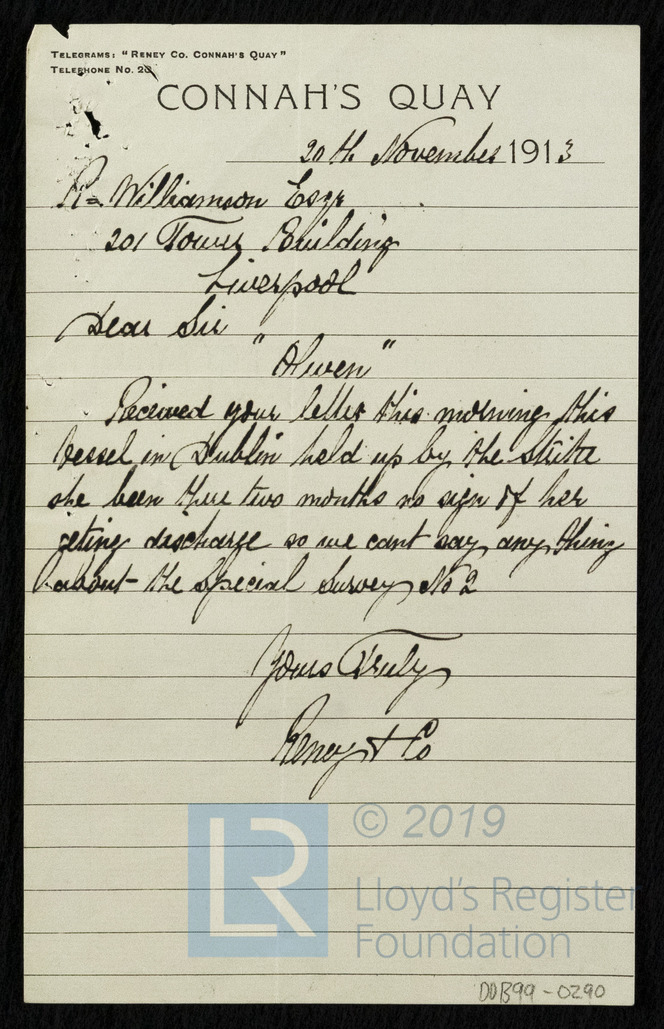 TELEGRAMS: "RENEY CO. CONNAH'S QUAY"
TELEPHONE NO. 20
CONNAH'S QUAY
20th November 1913
R= Williamson Esqr
201 Tower Building
Liverpool
Dear Sir
"Olwen"
Received your letter this morning this
vessel in Dublin held up by the strike
she been there two months no sign of her
geting discharge so we cant say any thing
about the Special Survey No 2
Yours Truly
Reney & Co
LR
© 2019
Lloyd's Register
Foundation
DDB99-0290